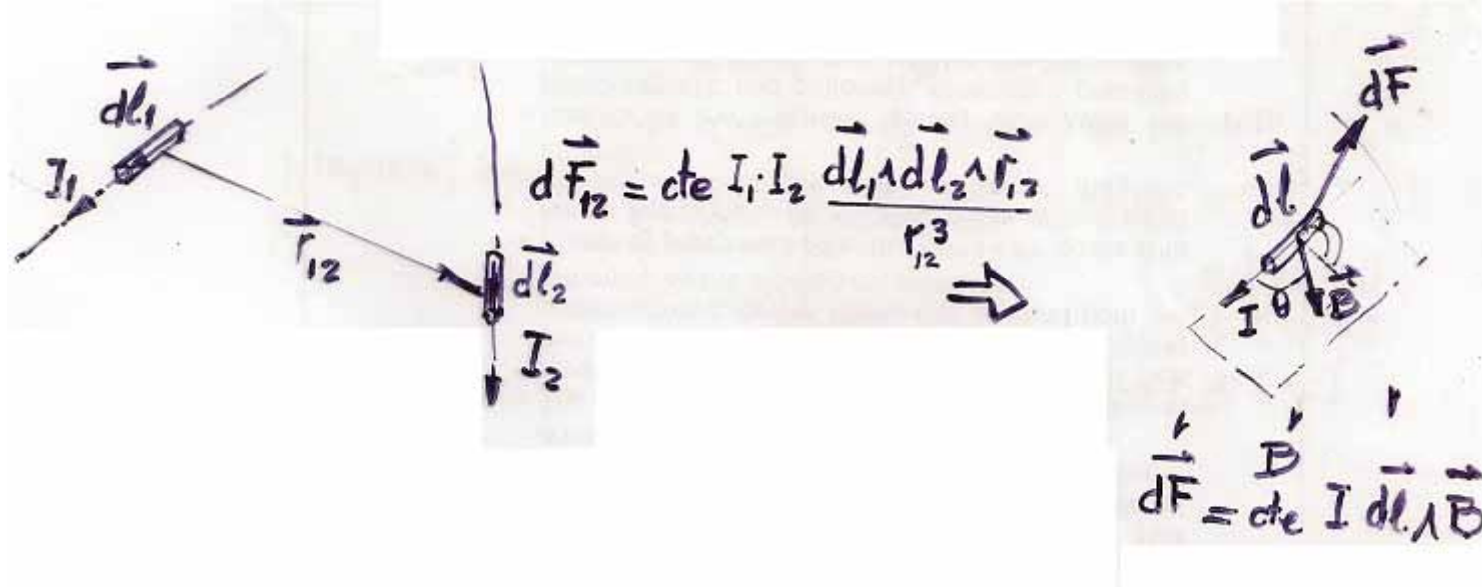 d→l₁
I₁
r→₁₂
d→l₂
I₂
dF→₁₂ = cte I₁·I₂ (d→l₁ ∧ d→l₂ ∧ r→₁₂) / r₁₂³
⇒
d→F
d→l
I θ B→
B
d→F = cte I d→l ∧ B→